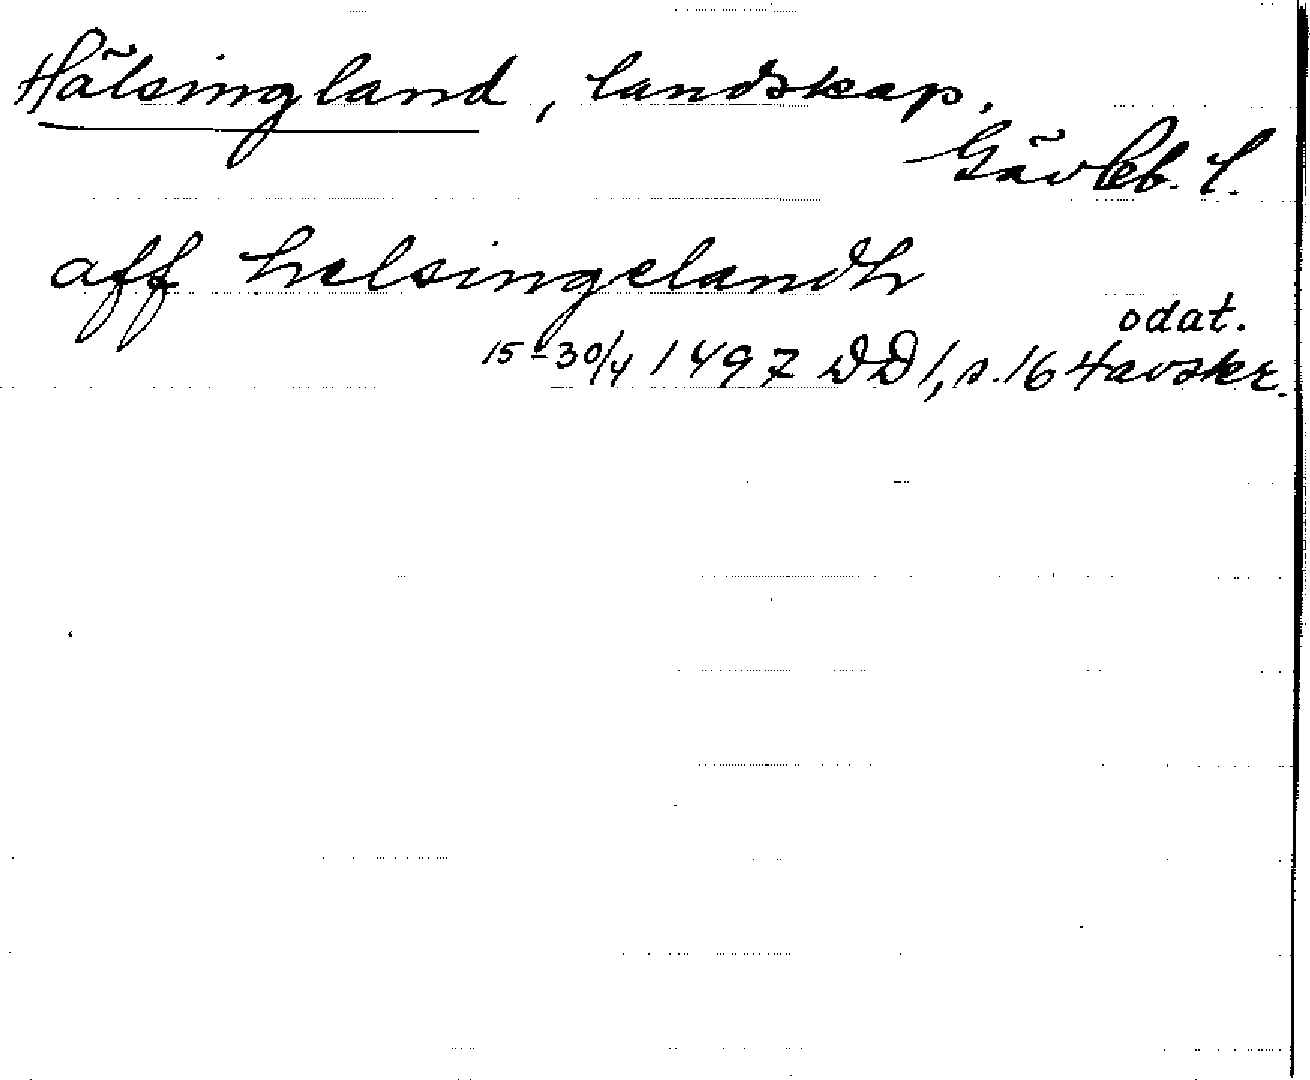 Hälsingland, landskap,
Gävleb. l.
aff helsingelandh
odat.
15-30/4 1497 DD 1, s. 164 avskr.